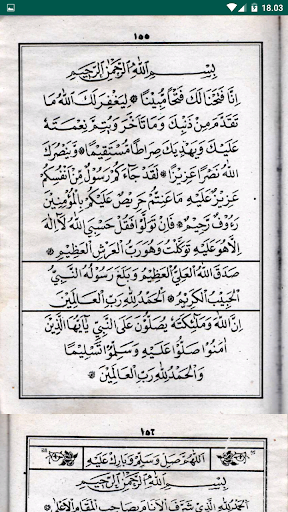 18.03
١٥٥
بِسْمِ اللهِ الرَّحْمٰنِ الرَّحِيْمِ
اِنَّا فَتَحْنَا لَكَ فَتْحًا مُبِيْنًا ۞ لِيَغْفِرَ لَكَ اللهُ مَا
تَقَدَّمَ مِنْ ذَنْبِكَ وَمَا تَاَخَّرَ وَيُتِمَّ نِعْمَتَهُ
عَلَيْكَ وَيَهْدِيَكَ صِرَاطًا مُسْتَقِيْمًا ۞ وَيَنْصُرَكَ
اللهُ نَصْرًا عَزِيْزًا ۞ لَقَدْ جَاءَكُمْ رَسُوْلٌ مِنْ اَنْفُسِكُمْ
عَزِيْزٌ عَلَيْهِ مَا عَنِتُّمْ حَرِيْصٌ عَلَيْكُمْ بِالْمُؤْمِنِيْنَ
رَءُوْفٌ رَحِيْمٌ ۞ فَاِنْ تَوَلَّوْا فَقُلْ حَسْبِيَ اللهُ لَا اِلٰهَ
اِلَّا هُوَ عَلَيْهِ تَوَكَّلْتُ وَهُوَ رَبُّ الْعَرْشِ الْعَظِيْمِ ۞
صَدَقَ اللهُ الْعَلِيُّ الْعَظِيْمُ وَبَلَّغَ رَسُوْلُهُ النَّبِيُّ
الْحَبِيْبُ الْكَرِيْمُ ۞ اَلْحَمْدُ لِلّٰهِ رَبِّ الْعَالَمِيْنَ
اِنَّ اللهَ وَمَلٰئِكَتَهُ يُصَلُّوْنَ عَلَى النَّبِيِّ يٰاَيُّهَا الَّذِيْنَ
اٰمَنُوْا صَلُّوْا عَلَيْهِ وَسَلِّمُوْا تَسْلِيْمًا
وَالْحَمْدُ لِلّٰهِ رَبِّ الْعَالَمِيْنَ ۞
١٥٢
اَللّٰهُمَّ صَلِّ وَسَلِّمْ وَبَارِكْ عَلَيْهِ
بِسْمِ اللهِ الرَّحْمٰنِ الرَّحِيْمِ
اَلْحَمْدُ لِلّٰهِ الَّذِيْ شَرَّفَ الْاَنَامَ بِصَاحِبِ الْمَقَامِ الْاَعْلٰى ۞